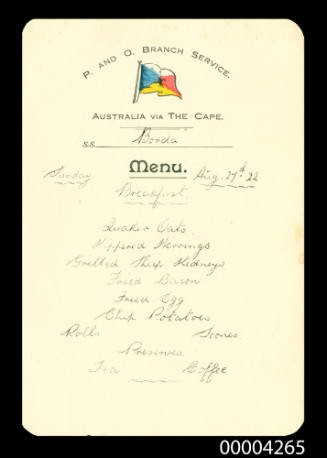 P. AND O. BRANCH SERVICE.
AUSTRALIA VIA THE CAPE.
S.S. Borda
Menu.
Sunday Aug. 27th 22
Breakfast.
Quaker Oats
Kippered Herrings
Grilled Sheep Kidneys
Fried Bacon
Fried Egg
Chip Potatoes
Rolls Scones
Preserves
Tea Coffee
00004265